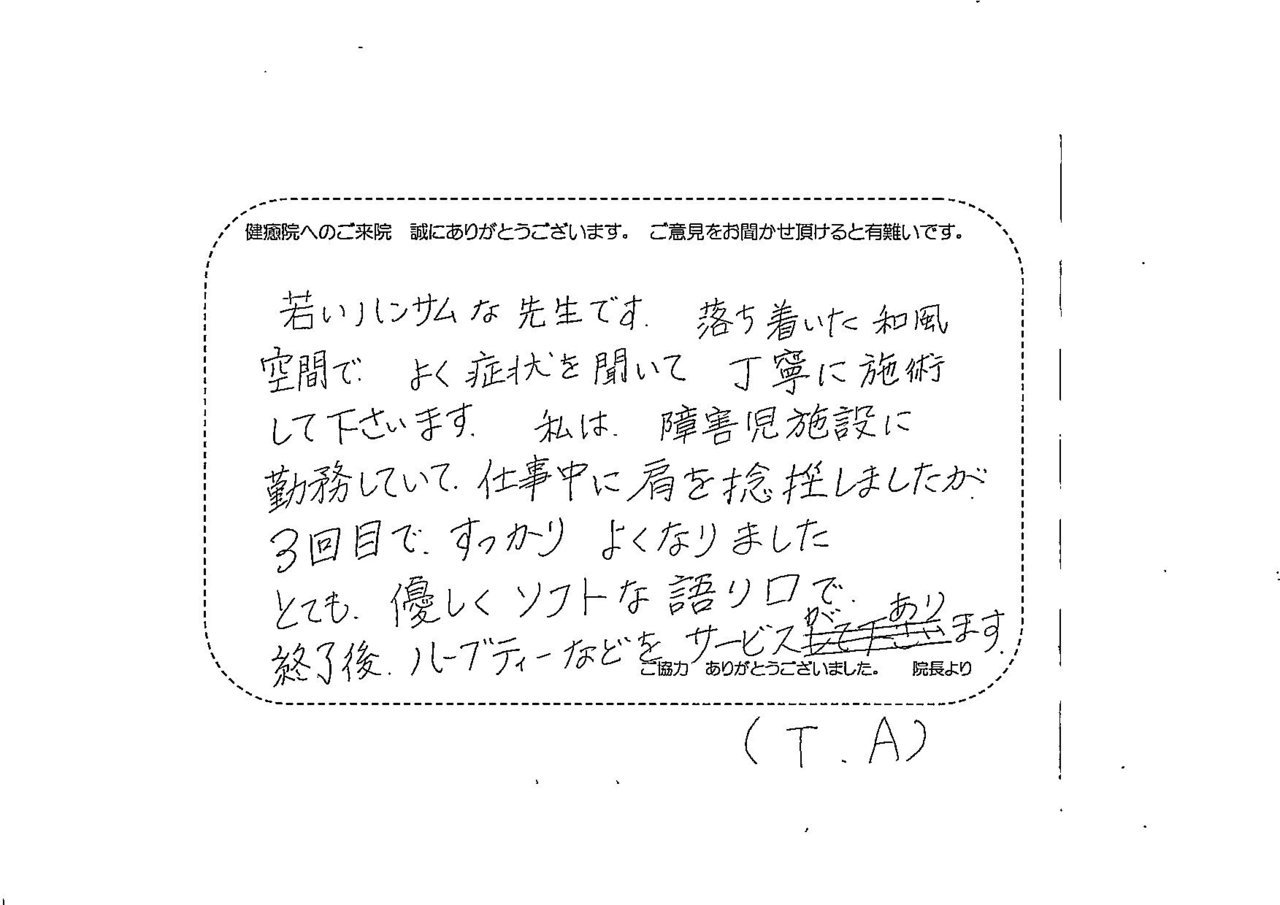 健癒院へのご来院　誠にありがとうございます。　ご意見をお聞かせ頂けると有難いです。
若いハンサムな先生です.　落ち着いた和風
空間で.　よく症状を聞いて　丁寧に施術
して下さいます.　私は.　障害児施設に
勤務していて.仕事中に肩を捻挫しましたが.
3回目で.すっかり　よくなりました
とても.優しくソフトな語り口で.
終了後.ハーブティーなどをサービスがあります.
ご協力　ありがとうございました。　院長より
(T.A)